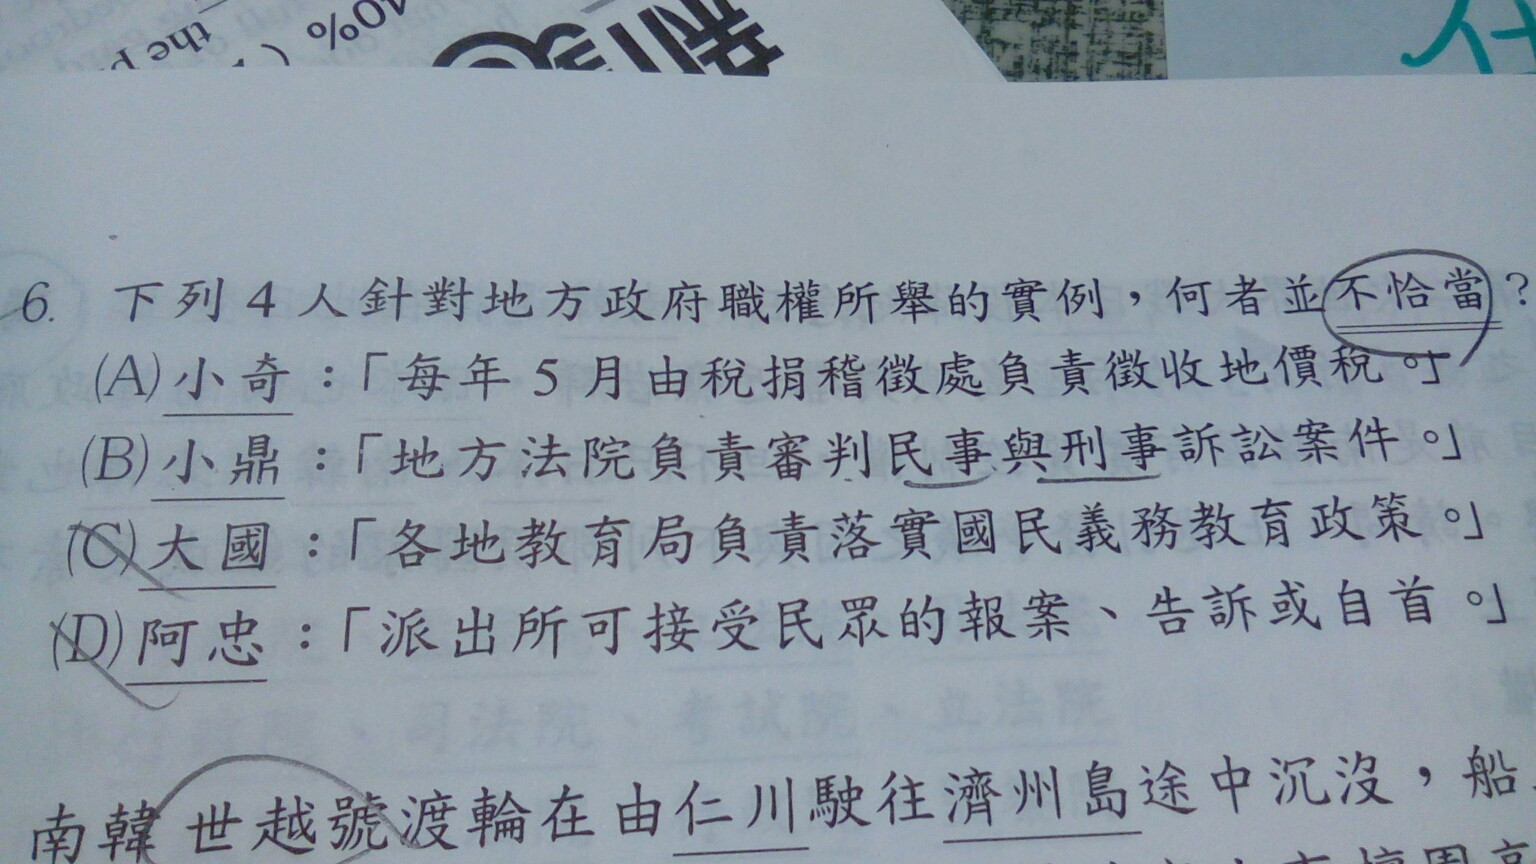 40%
the
6. 下列4人針對地方政府職權所舉的實例，何者並不恰當？
(A)小奇：「每年5月由稅捐稽徵處負責徵收地價稅。」
(B)小鼎：「地方法院負責審判民事與刑事訴訟案件。」
(C)大國：「各地教育局負責落實國民義務教育政策。」
(D)阿忠：「派出所可接受民眾的報案、告訴或自首。」
南韓世越號渡輪在由仁川駛往濟州島途中沉沒，船